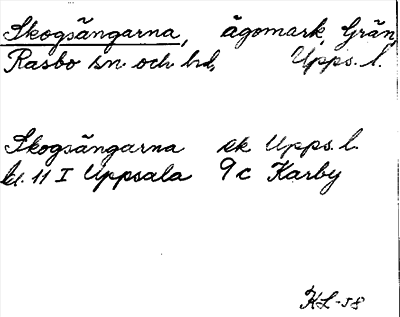 Skogsängarna, ägomark, Grän,
Rasbo sn. och hd, Upps. l.
Skogsängarna ek Upps. l.
bl. 11 I Uppsala 9c Karby
KL-58